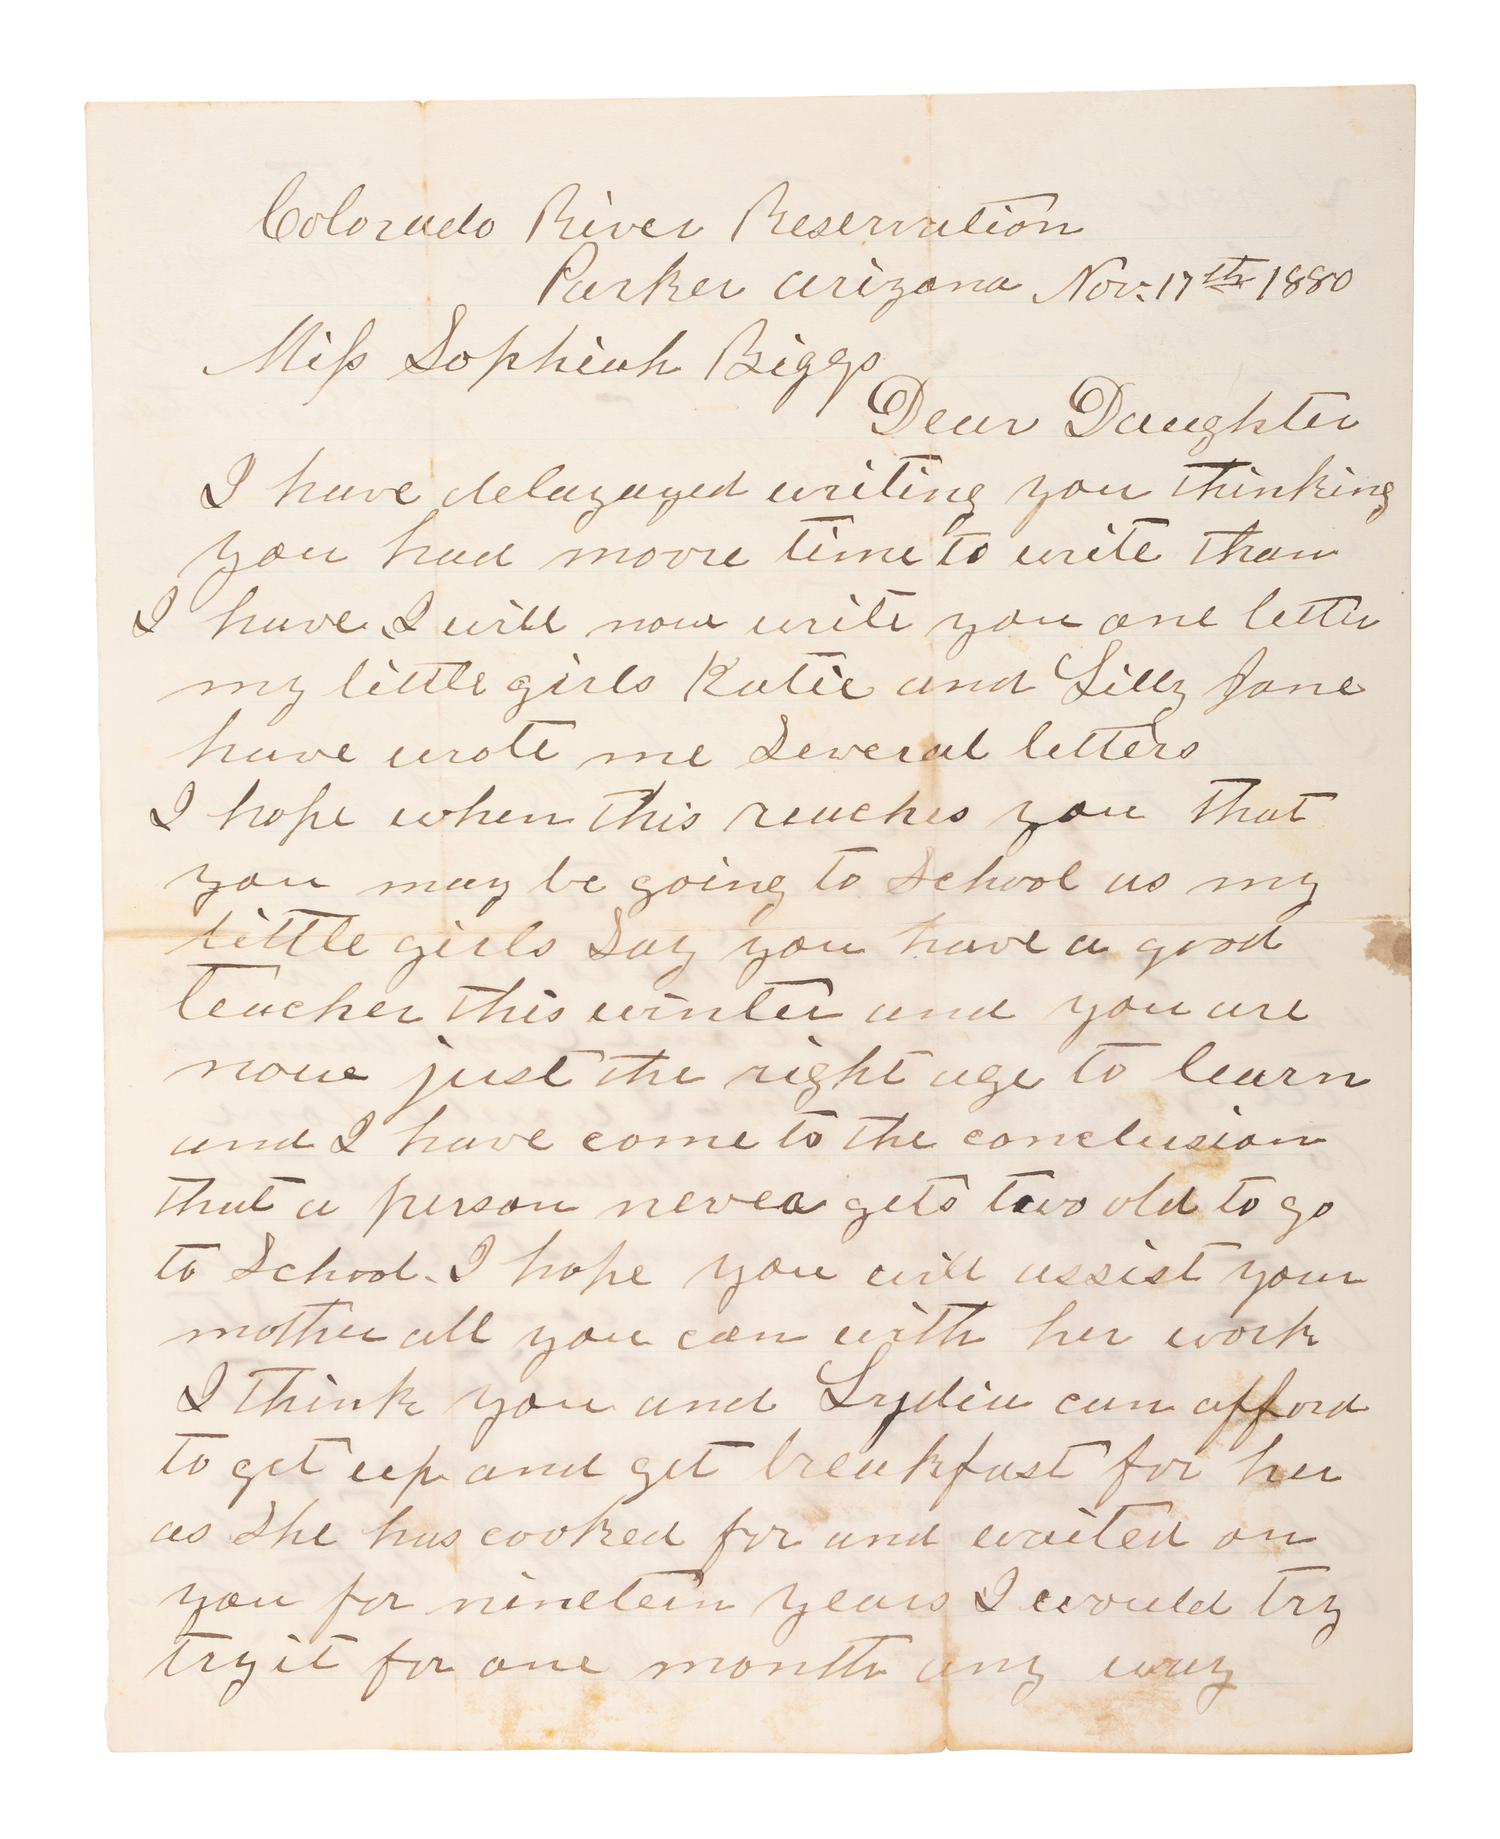 Colorado River Reservation
Parker Arizona Nov. 17th 1880
Miss Sophiah Biggs
Dear Daughter
I have delayayed writing you thinking
you had moore time to write than
I have. I will now write you one letter
my little girls Katie and Lilly Jane
have wrote me Several letters
I hope when this reaches you that
you may be going to School as my
little girls Say you have a good
teacher this winter and you are
now just the right age to learn
and I have come to the conclusion
that a person never gets two old to go
to School. I hope you will assist your
mother all you can with her work
I think you and Lydia can afford
to get up and get breakfast for her
as She has cooked for and waited on
you for nineteen years I would try
try it for one month any way